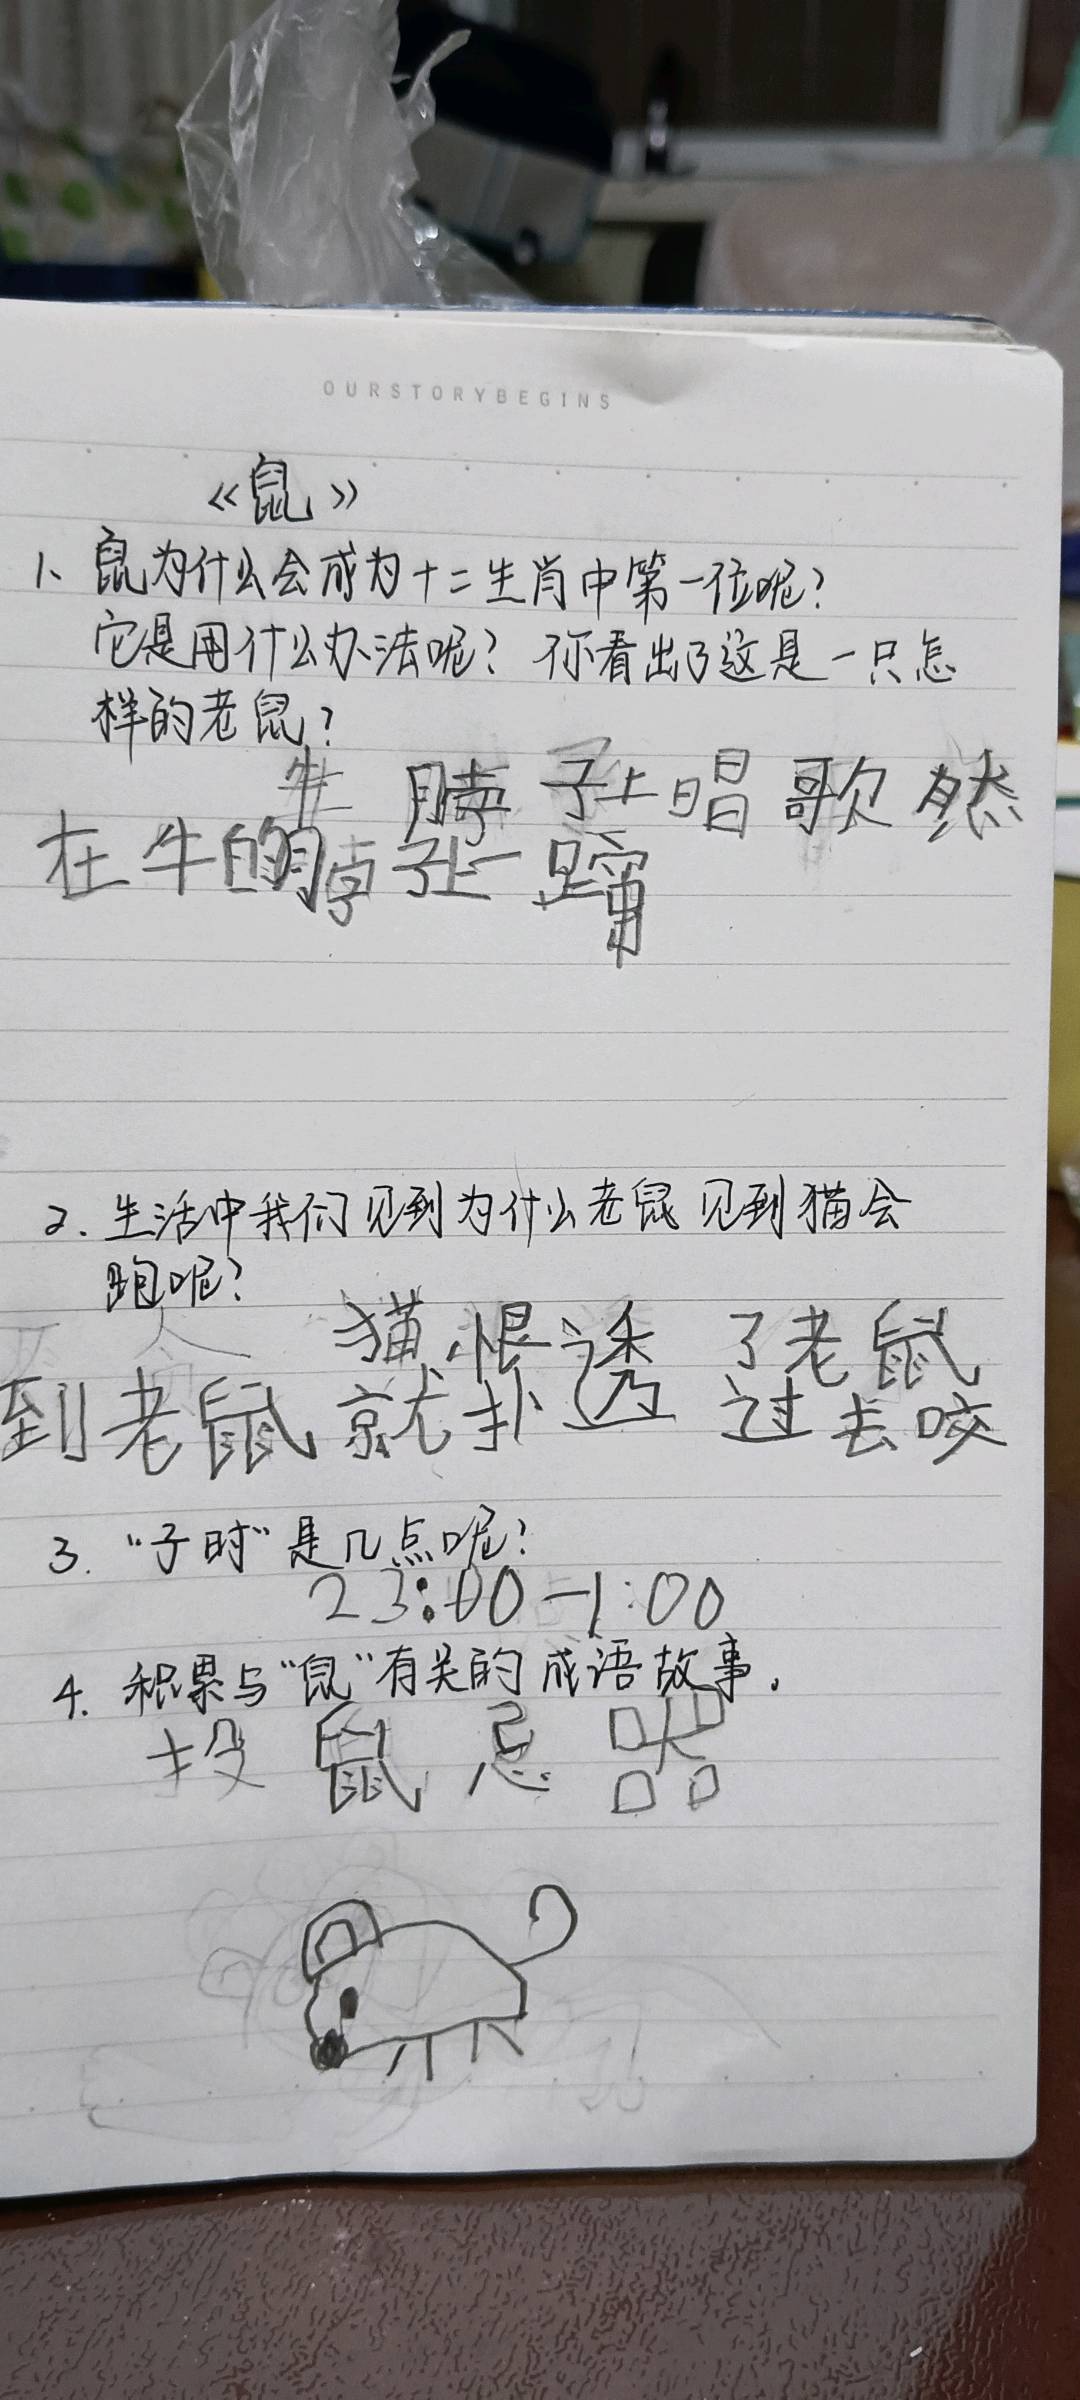 OURSTORYBEGINS
《鼠》
1、鼠为什么会成为十二生肖中第一位呢?
它是用什么办法呢? 你看出了这是一只怎
样的老鼠?
牛 脖子上唱歌 然
在牛的脖子上一蹿
2. 生活中我们见到为什么老鼠见到猫会
跑呢?
猫恨透了老鼠
到老鼠就扑过去咬
3. “子时”是几点呢?
23:00-1:00
4. 积累与“鼠”有关的成语故事.
投鼠忌器